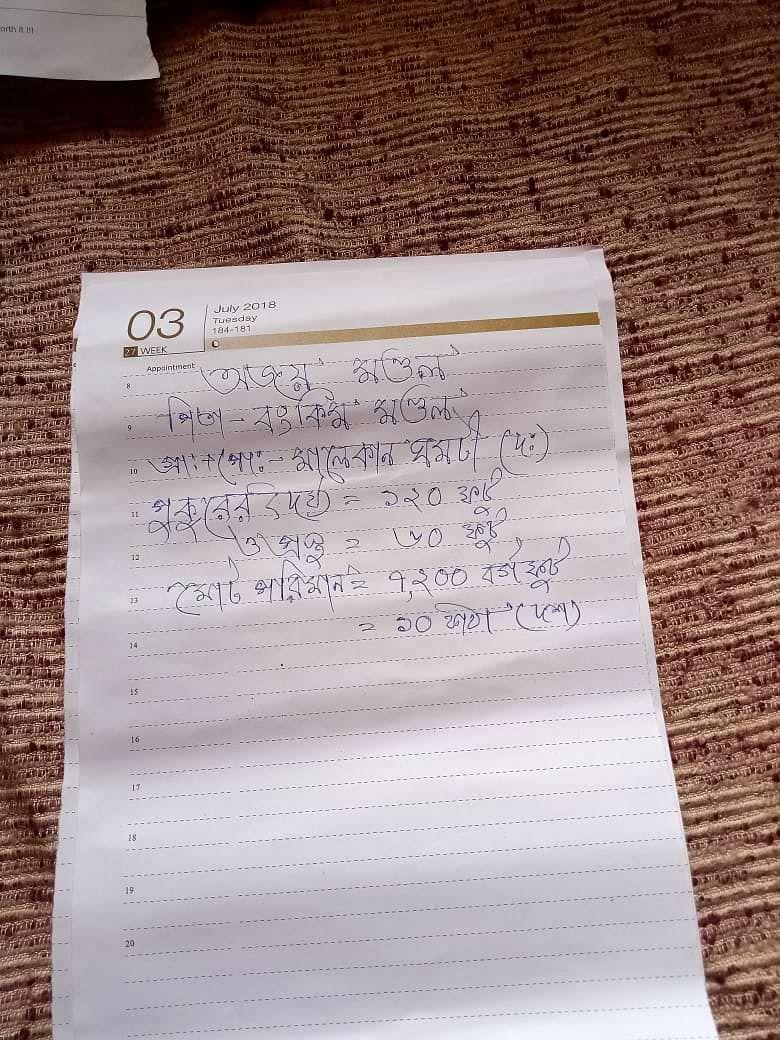 orth it !!!
03
July 2018
Tuesday
184-181
27 WEEK
Appointment
8
অজয় মণ্ডল
9
পিতা - বংকিম মণ্ডল
10
গ্রাঃ+পোঃ- মালেকান ঘুমটী (দঃ)
11
পুকুরের দৈর্ঘ্য = ১২০ ফুট
12
ও প্রস্থ = ৬০ ফুট
13
মোট পরিমান = ৭,২০০ বর্গ ফুট
= ১০ কাঠা (দশ)
14
15
16
17
18
19
20